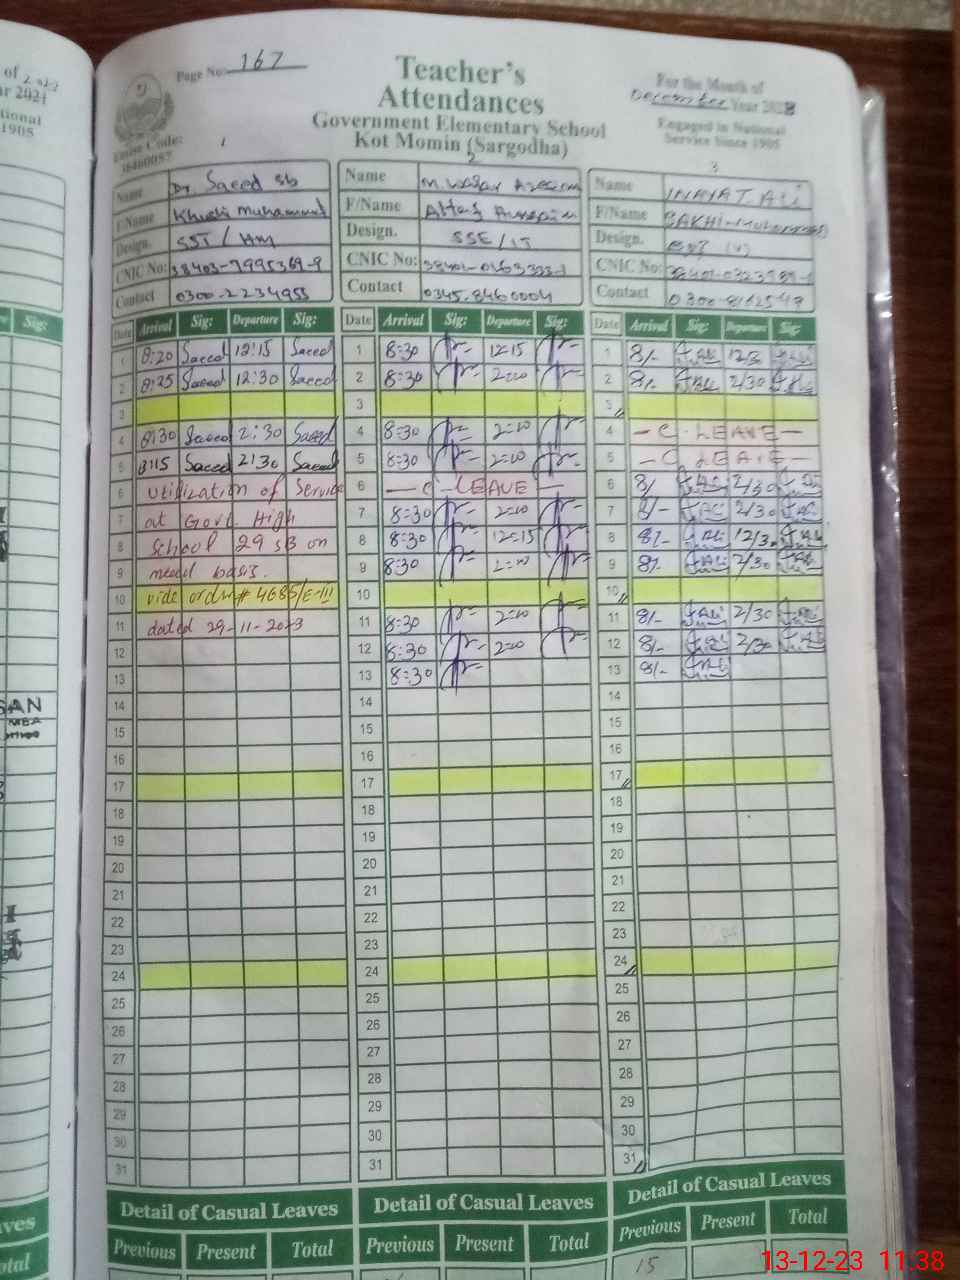 Page No: 167
Teacher's
Attendances
Government Elementary School
Kot Momin (Sargodha)
For the Month of
December Year 2023
Engaged in National
Service Since 1905
1
2
3
Name Dr Saeed sb
F/Name Khushi Muhammad
Design. SST / HM
CNIC No: 38403-7995369-9
Contact 0300-2234955
Name
F/Name
Design. SSE / IT
CNIC No:
Contact 0345-8460004
Name INAYAT ALi
F/Name
Design.
CNIC No:
Contact
Date Arrival Sig: Departure Sig: Date Arrival Sig: Departure Sig: Date Arrival Sig: Departure Sig:
1 8:20 Saeed 12:15 Saeed 1 8:30 12:15 1 8/- 12/30
2 8:25 Saeed 12:30 Saeed 2 8:30 2:00 2 8/- 2/30
3 3 3
4 8:30 Saeed 2:30 Saeed 4 8:30 2:00 4 - C. LEAVE -
5 8:15 Saeed 2:30 Saeed 5 8:30 2:00 5 - C LEAVE -
6 utilization of Service 6 - C - LEAVE - 6 8/ 2/30
7 at Govt. High 7 8:30 2:00 7 8/- 2/30
8 School 29 SB on 8 8:30 12:15 8 8/- 12/30
9 need basis. 9 8:30 2:00 9 8/- 2/30
10 vide order # 4685/E-III 10 10
11 dated 29-11-2023 11 8:30 2:00 11 8/- 2/30
12 12 8:30 2:00 12 8/- 2/30
13 13 8:30 13 8/-
14 14 14
15 15 15
16 16 16
17 17 17
18 18 18
19 19 19
20 20 20
21 21 21
22 22 22
23 23 23
24 24 24
25 25 25
26 26 26
27 27 27
28 28 28
29 29 29
30 30 30
31 31 31
Detail of Casual Leaves Detail of Casual Leaves Detail of Casual Leaves
Previous Present Total Previous Present Total Previous Present Total
15
13-12-23 11:38